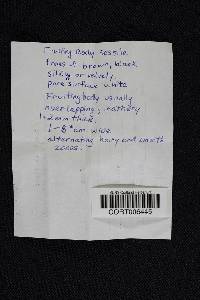 Fruiting body sessile
brown, black
silky or velvety,
pore surface white
Fruiting body usually
overlapping, leathery
1-2mm thick,
1-8 cm wide
alternating hairy and smooth
zones.
CORT006445